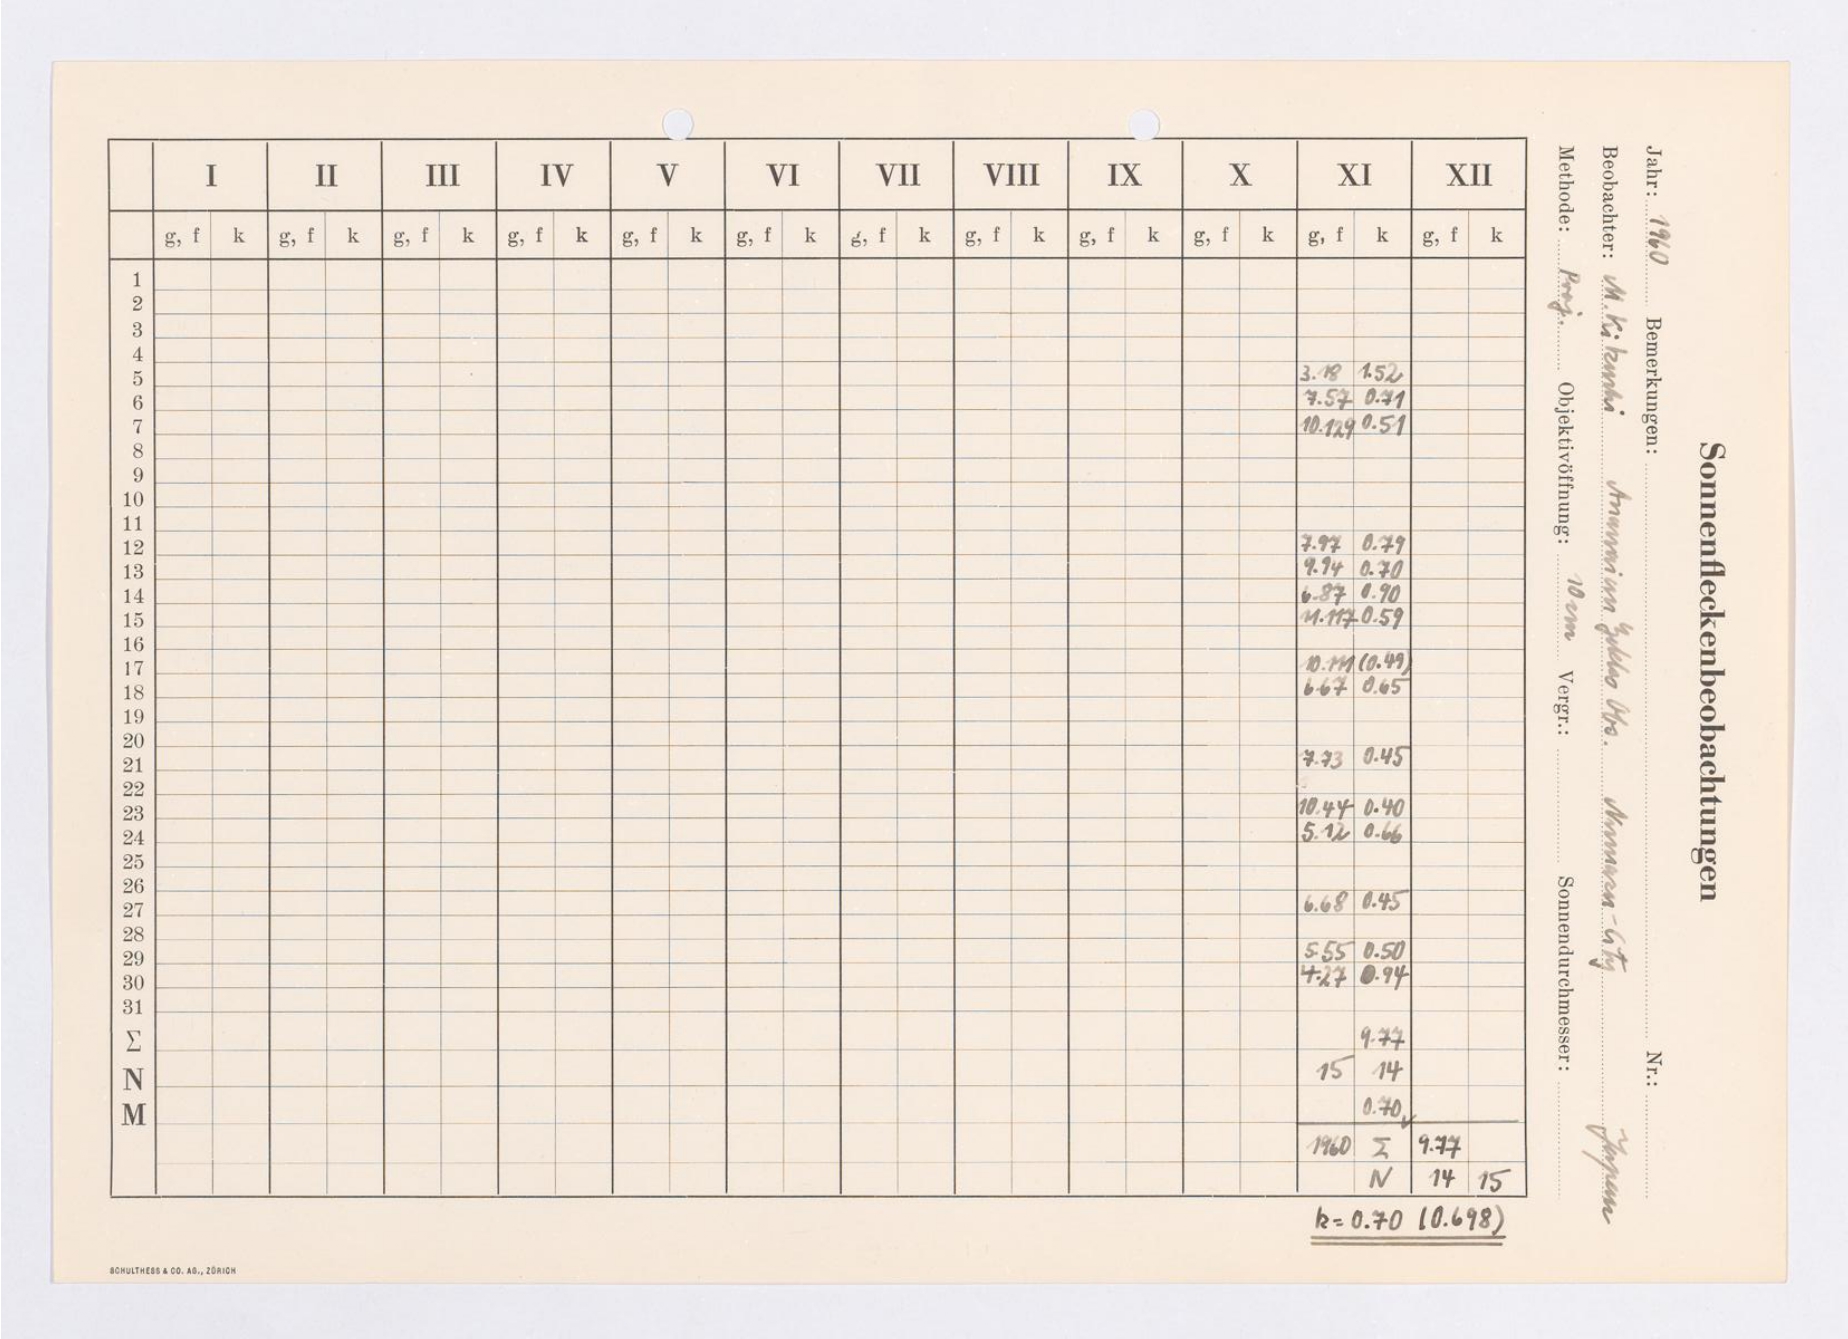 Sonnenfleckenbeobachtungen
Jahr: 1960 Bemerkungen: Nr.:
Beobachter: M. Kikuchi Obs. Numazu-City Japan
Methode: Proj. Objektivöffnung: 10 cm Vergr.: Sonnendurchmesser:
I II III IV V VI VII VIII IX X XI XII
g, f k g, f k g, f k g, f k g, f k g, f k g, f k g, f k g, f k g, f k g, f k g, f k
1
2
3
4
5 3.18 1.52
6 7.57 0.71
7 10.129 0.51
8
9
10
11
12 7.97 0.79
13 9.94 0.70
14 6.87 0.90
15 11.117 0.59
16
17 10.111 (0.49)
18 6.67 0.65
19
20
21 7.73 0.45
22
23 10.44 0.40
24 5.12 0.66
25
26
27 6.68 0.45
28
29 5.55 0.50
30 4.27 0.94
31
Σ 9.77
N 15 14
M 0.70
1960 Σ 9.77
N 14 15
k = 0.70 (0.698)
SCHULTHESS & CO. AG., ZÜRICH